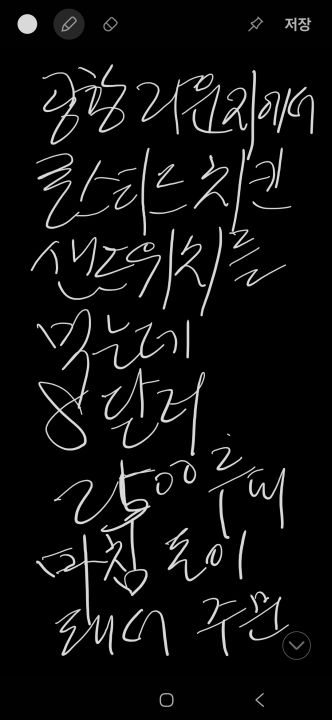 저장
공항 라운지에서
로스티드 치킨
샌드위치를
먹는데
8달러
2500
마침 돈이
돼서 주문